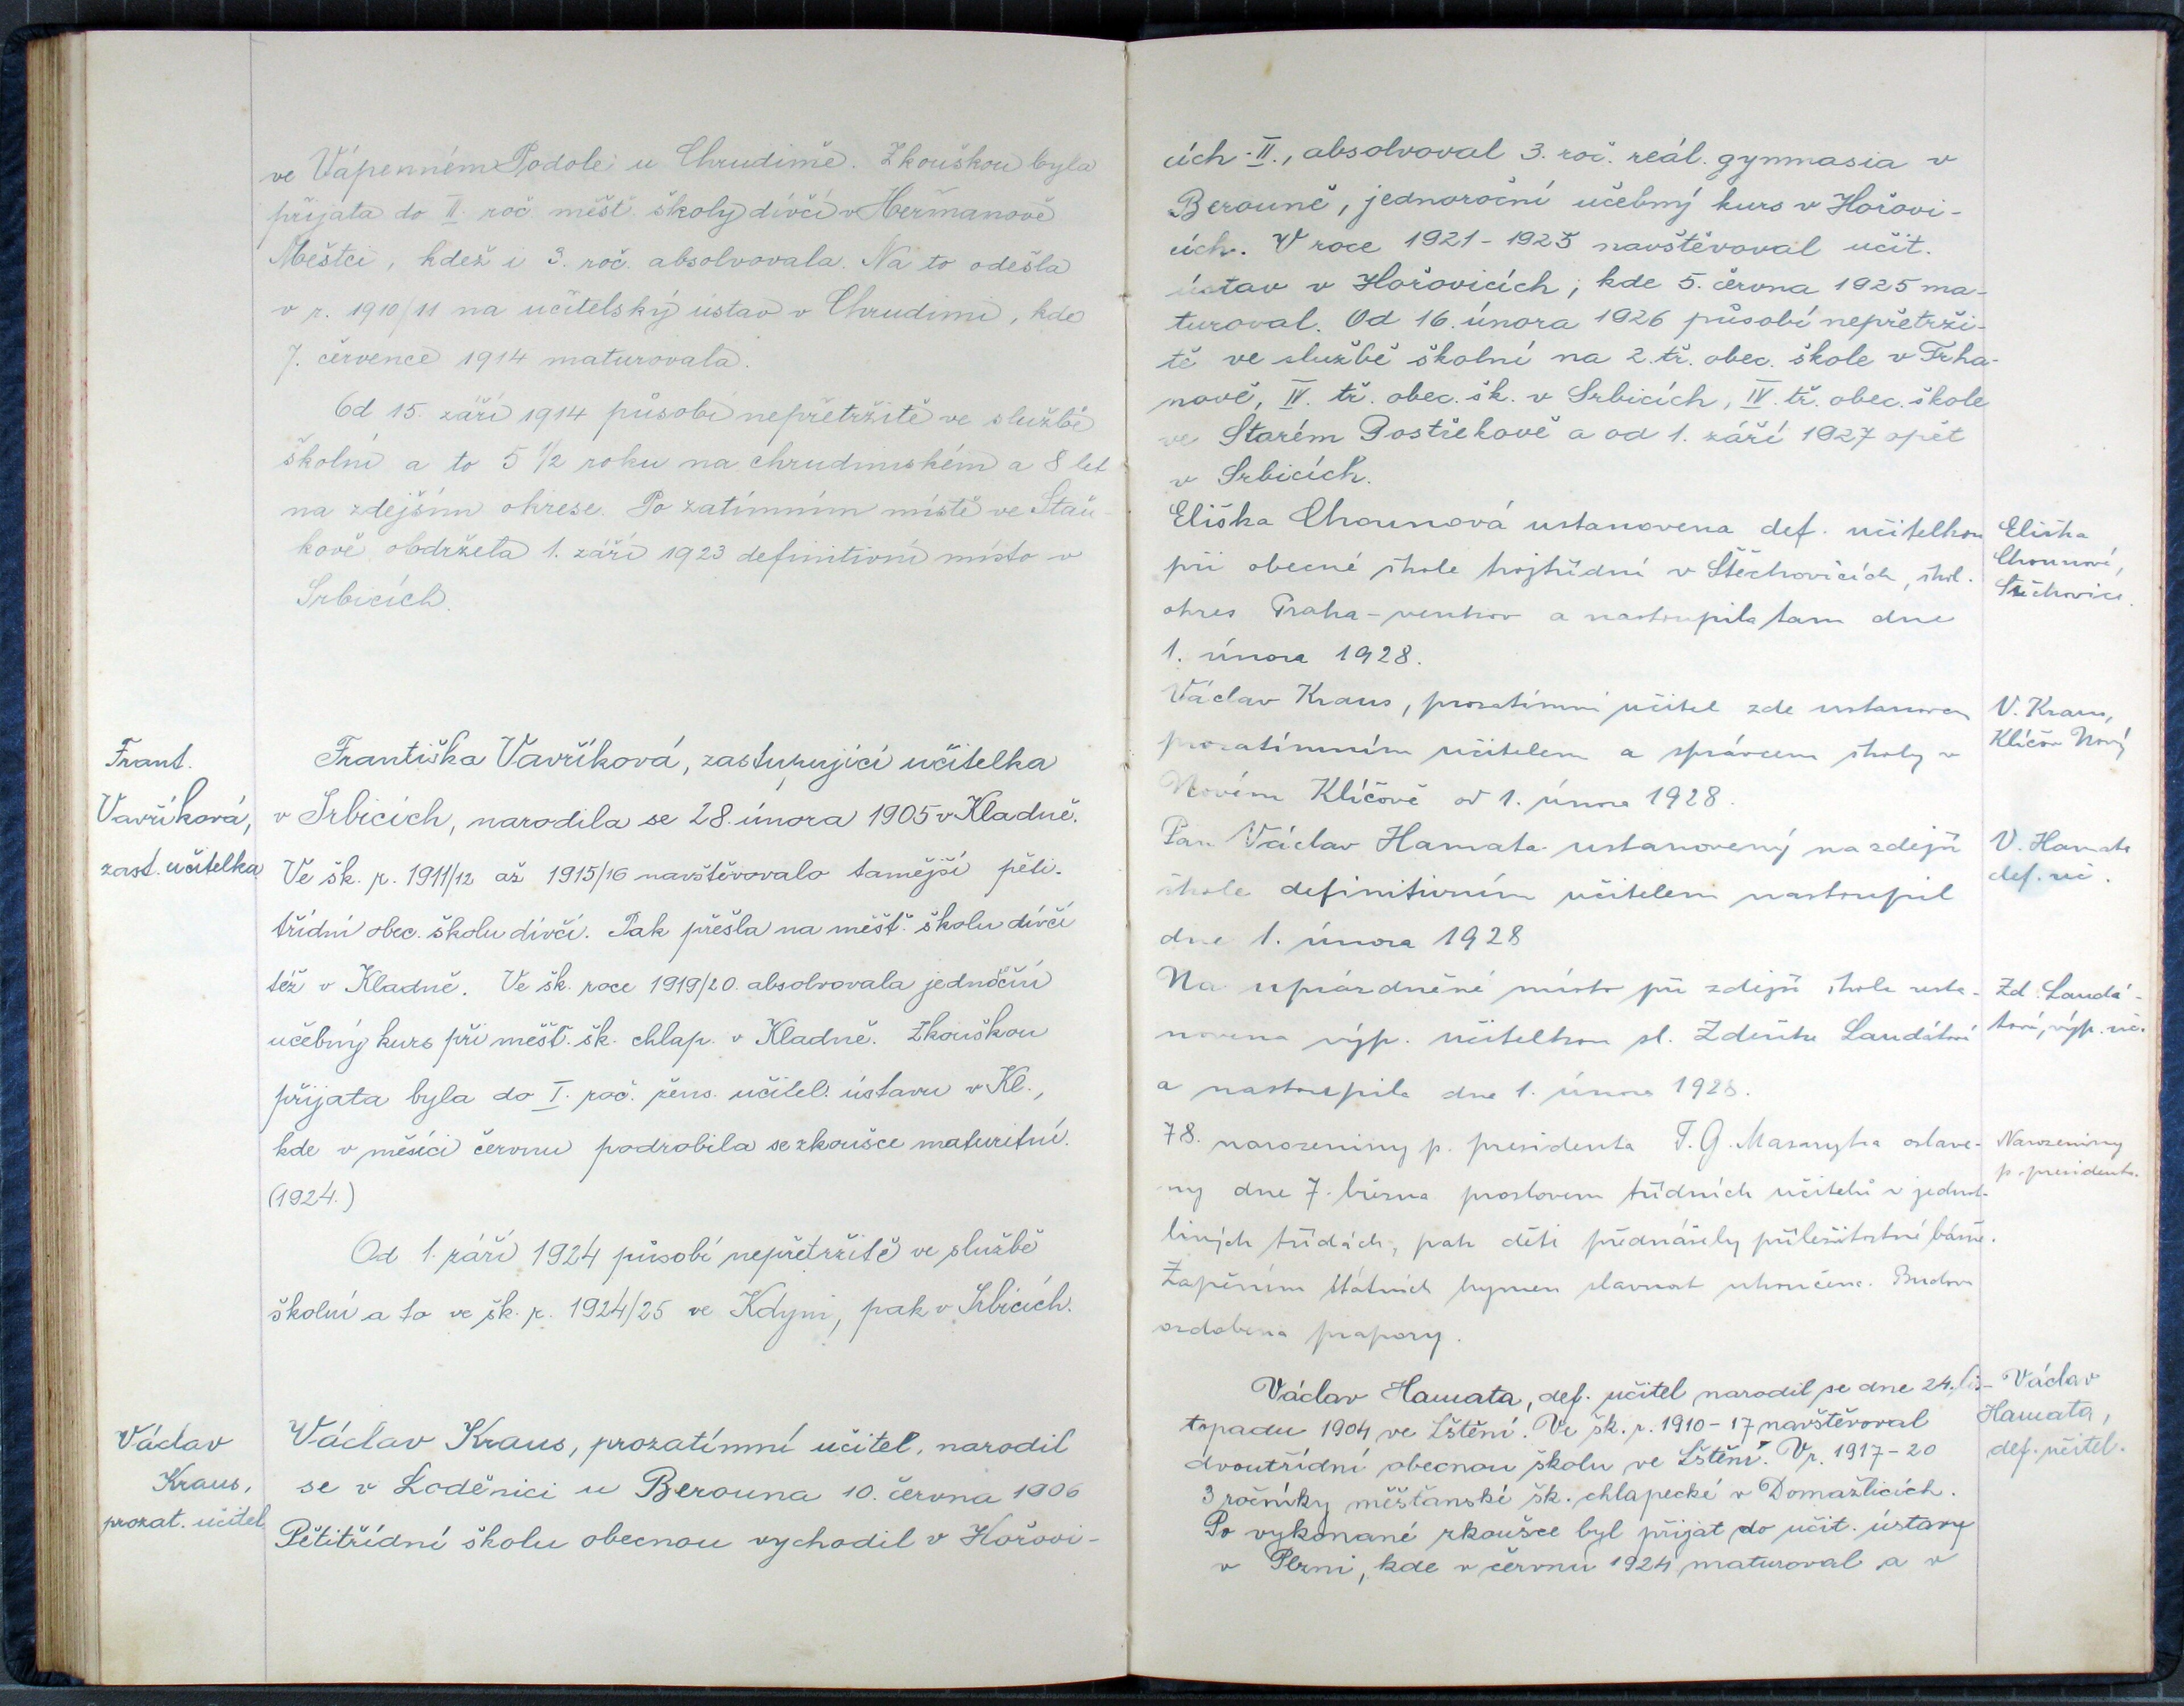 ve Vápenném Podole u Chrudimě. Zkouškou byla
přijata do II. roč. měšť. školy dívčí v Heřmanově
Městci, kdež i 3. roč. absolvovala. Na to odešla
v r. 1910/11 na učitelský ústav v Chrudimi, kde
7. července 1914 maturovala.
Od 15. září 1914 působí nepřetržitě ve službě
školní a to 5 1/2 roku na chrudimském a 8 let
na zdejším okrese. Po zatímním místě ve Staň-
kově obdržela 1. září 1923 definitivní místo v
Srbicích.
Frant.
Vavříková,
zast. učitelka
Františka Vavříková, zastupující učitelka
v Srbicích, narodila se 28. února 1905 v Kladně.
Ve šk. r. 1911/12 až 1915/16 navštěvovala tamější pěti-
třídní obec. školu dívčí. Pak přešla na měšť. školu dívčí
též v Kladně. Ve šk. roce 1919/20 absolvovala jednoroční
učebný kurs při měšť. šk. chlap. v Kladně. Zkouškou
přijata byla do I. roč. žens. učitel. ústavu v Kl.,
kde v měsíci červnu podrobila se zkoušce maturitní.
(1924.)
Od 1. září 1924 působí nepřetržitě ve službě
školní a to ve šk. r. 1924/25 ve Kdyni, pak v Srbicích.
Václav
Kraus,
prozat. učitel
Václav Kraus, prozatímní učitel, narodil
se v Loděnici u Berouna 10. června 1906
Pětitřídní školu obecnou vychodil v Hořovi-
cích-II., absolvoval 3. roč. reál. gymnasia v
Berouně, jednoroční učebný kurs v Hořovi-
cích. V roce 1921-1925 navštěvoval učit.
ústav v Hořovicích, kde 5. června 1925 ma-
turoval. Od 16. února 1926 působí nepřetrži-
tě ve službě školní na 2. tř. obec. škole v Trha-
nově, IV. tř. obec. šk. v Srbicích, IV. tř. obec. škole
ve Starém Postřekově a od 1. září 1927 opět
v Srbicích.
Eliška Chounová ustanovena def. učitelkou
při obecné škole trojtřídní v Štěchovicích, škol.
okres Praha-venkov a nastoupila tam dne
1. února 1928.
Eliška
Chounová,
Štěchovice.
Václav Kraus, prozatímní učitel zde ustanoven
prozatímním učitelem a správcem školy v
Novém Klíčově od 1. února 1928.
V. Kraus,
Klíčov Nový
Pan Václav Hamata ustanovený na zdejší
škole definitivním učitelem nastoupil
dne 1. února 1928
V. Hamata
def. uč.
Na uprázdněné místo při zdejší škole usta-
novena výp. učitelkou sl. Zdeňka Laudátová
a nastoupila dne 1. února 1928.
Zd. Laudá-
tová, výp. uč.
78. narozeniny p. presidenta T. G. Masaryka oslave-
ny dne 7. března proslovem třídních učitelů v jednot-
livých třídách, pak děti přednášely příležitostné básně.
Zapěním státních hymen slavnost ukončena. Budova
ozdobena prapory.
Narozeniny
p. presidenta.
Václav Hamata, def. učitel narodil se dne 24. lis-
topadu 1904 ve Lštění. Ve šk. r. 1910-17 navštěvoval
dvoutřídní obecnou školu ve Lštění. V r. 1917-20
3 ročníky měšťanské šk. chlapecké v Domažlicích.
Po vykonané zkoušce byl přijat do učit. ústavu
v Plzni, kde v červnu 1924 maturoval a v
Václav
Hamata,
def. učitel.